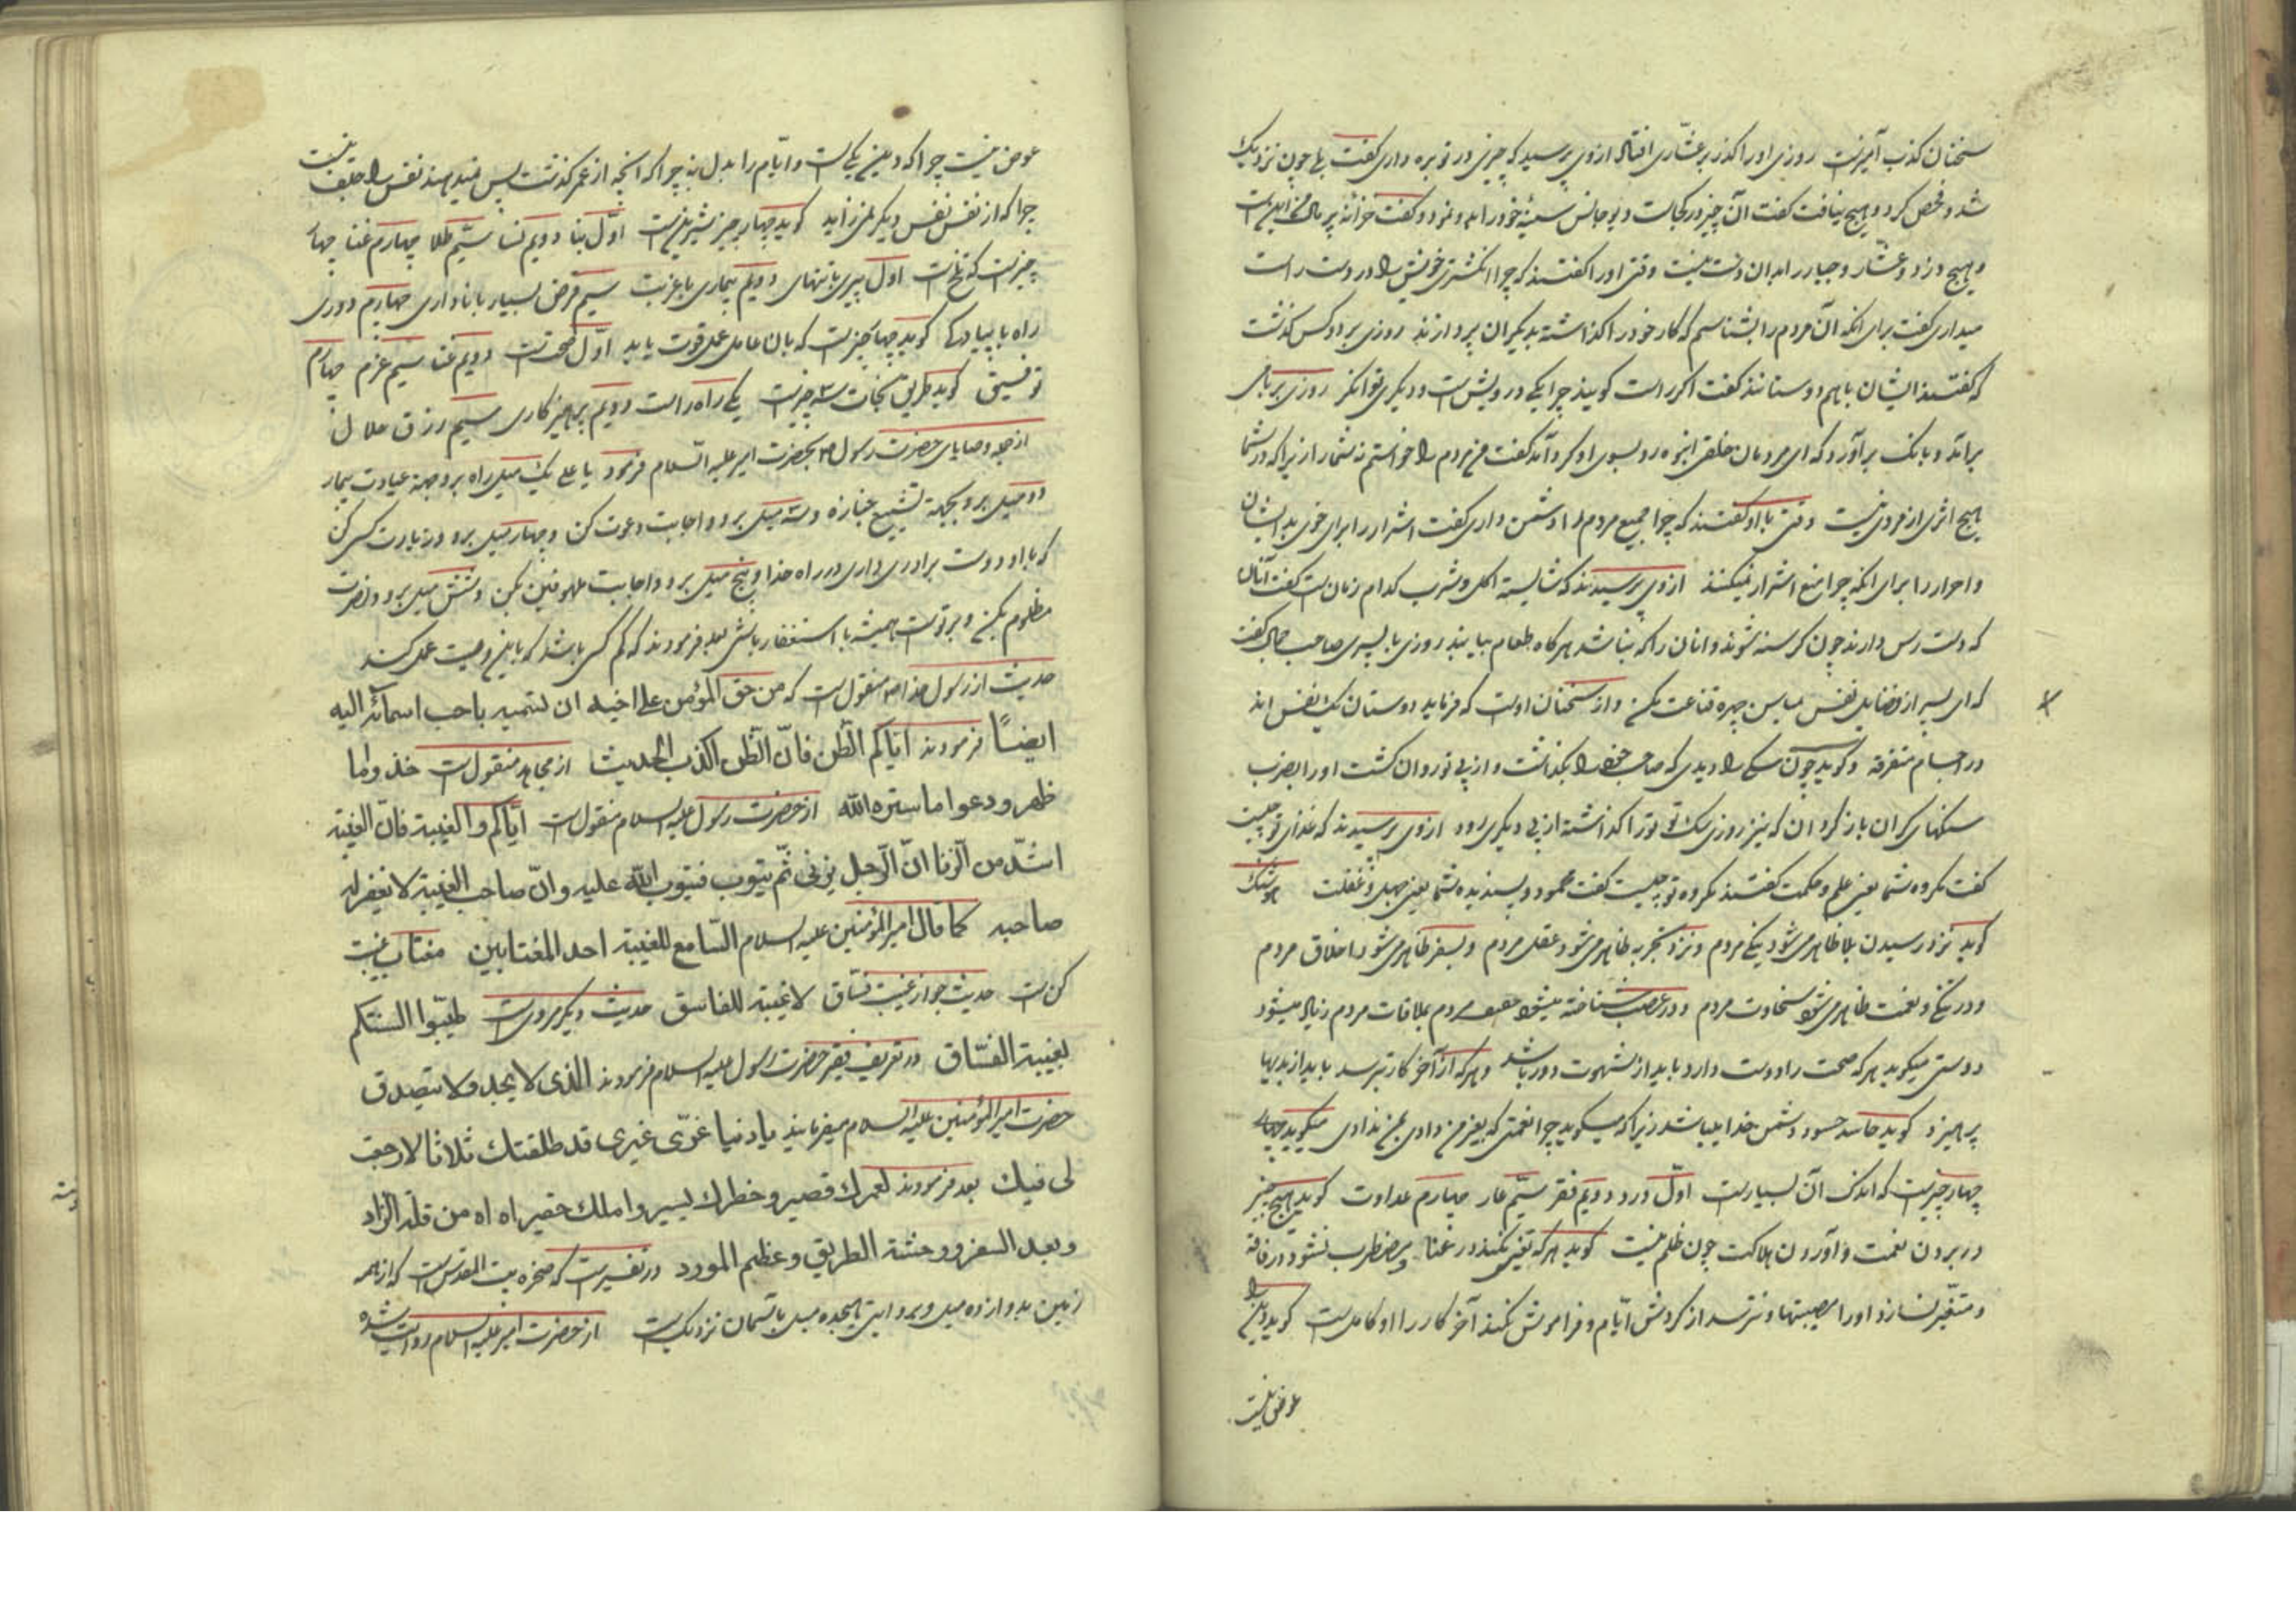 سخنان کذب آمیزست روزی او را گذر بر عشّاری افتاد از وی پرسید که چیزی در توبره داری گفت بلی چون نزدیک
شد و فحص کرد و هیچ نیافت گفت آن چیز در کجاست دیوجانس سینهٔ خود را بدو نمود و گفت خزانهٔ پر مال من اینست
و هیچ دزد و عشّار و جبار را بدان دست نیست وقتی او را گفتند که چرا انگشتری خویش را در دست راست
میداری گفت برای آنکه آن مردم را بشناسم که کار خود را گذاشته بدیگران پردازند روزی بر دو کس گذشت
که گفتند ایشان باهم دوستانند گفت اگر راست گویند چرا یکی درویش است و دیگری توانگر روزی بر بامی
برآمد و بانک برآورد که ای مردمان خلقی انبوه رو بسوی او کردند گفت من مردم را خواستم نه شما را زیرا که در شما
هیچ اثری از مردی نیست وقتی با او گفتند که چرا جمیع مردم را دشمن داری گفت اشرار را برای خوی بد ایشان
و احرار را برای آنکه چرا منع اشرار نمیکنند از وی پرسیدند که شایسته اکل و شرب کدام زمان است گفت آنان
که دست رس دارند چون گرسنه شوند و آنان را که نباشد هرگاه طعام بیابند روزی با پسری صاحب جمال گفت
که ای پسر از فضایل نفس بمحاسن چهره قناعت مکن و از سخنان اوست که فرماید دوستان یک نفس اند
در اجسام متفرقه و گوید چون سگی را دیدی که صاحب خود را بگذاشت و از پی تو روان گشت او را بضرب
سنگهای گران بازگردان که نیز روزی سگ تو ترا گذاشته از پی دیگری رود از وی پرسیدند که غذای تو چیست
گفت مکروه شما یعنی علم و حکمت گفتند مکروه تو چیست گفت محمود و پسندیده شما یعنی جهل و غفلت هوشنگ
گوید نزد رسیدن بلا ظاهر می شود نیکی مردم و نزد تجربه ظاهر می شود عقل مردم و بسفر ظاهر می شود اخلاق مردم
و در تنگی و نعمت ظاهر می شود سخاوت مردم و در غضب شناخته میشود مردم بملاقات مردم زیاد میشود
دوستی میگوید هر که صحت را دوست دارد باید از شهوت دور باشد و هر که از آخر کار ترسد باید از بدیها
پرهیزد گوید حاسد حسود دشمن خدا میباشد زیرا که میگوید چرا نعمتی که بغیر من دادی بمن ندادی میگوید چهار
چهار چیز است که اندک آن بسیارست اوّل درد دویم فقر سیّم عار چهارم عداوت گوید هیچ چیز
در بردن نعمت و آوردن هلاکت چون ظلم نیست گوید هر که تغیّر نکند در غنا و مضطرب نشود در فاقه
و متغیّر نسازد او را مصیبتها و نترسد از گردش ایّام و فراموش نکند آخر کار را او کامل است گوید دین را
عوض نیست
عوض نیست چرا که دین یکی است و ایّام را بدل نه چرا که آنچه از عمر گذشت پس نمیدهند نفس را خلف نیست
چرا که از نفس نفس دیگر نمی زاید گوید چهار چیز شیرینست اوّل بنا دویم نسا سیّم طلا چهارم غنا چهار
چیزست که تلخ است اوّل پیری با تنهای دویم بیماری با غربت سیّم قرض بسیار با ناداری چهارم دوری
راه با پیاده گی گوید چهار چیزست که بآن عامل عمل قوت یابد اوّل صحت دویم غنا سیّم عزم چهارم
توفیق گوید طریق نجات سه چیزست یکی راه راست دویم پرهیز کاری سیّم رزق حلال
از جمله وصایای حضرت رسول ص بحضرت امیر علیه السلام فرمود یا علی یک میل راه برو بجهة عیادت بیمار
دو میل برو بجهة تشییع جنازه و سه میل برو و اجابت دعوت کن و چهار میل برو در زیارت کسی کن
که با او دوست برادری داری در راه خدا و پنج میل برو و اجابت ملهوفین بکن و شش میل برو و نصرت
مظلوم بکن و بر توست همیشه با استغفار باشی بعد فرمودند که کم کسی باشد که باین وصیت عمل کند
حدیث از رسول خدا ص منقول است که من حق المؤمن علی اخیه ان تسمیه باحب اسمائه الیه
ایضاً فرمودند ایّاکم الظن فانّ الظن اکذب الحدیث از مجاهد منقول است خذوا ما
ظهر و دعوا ما ستره الله از حضرت رسول علیه السلام منقول است ایّاکم والغیبة فانّ الغیبة
اشدّ من الزنا انّ الرّجل یزنی ثمّ یتوب فیتوب الله علیه و انّ صاحب الغیبة لا یغفر له
صاحبه کما قال امیرالمؤمنین علیه السلام السّامع للغیبة احد المغتابین مغتاب غیبت
کن است حدیث جواز غیبت فسّاق لا غیبة للفاسق حدیث دیگر مرویست طیّبوا السنتکم
بغیبة الفسّاق در تعریف فقیر حضرت رسول علیه السلام فرمودند الذی لا یجد ولا یتصدق
حضرت امیرالمؤمنین علیه السلام میفرمایند یا دنیا غرّی غیری قد طلقتک ثلاثا لا رجعة
لی فیک بعد فرمودند لعمرک قصیر و خطرک یسیر و املک حقیر اه اه من قلة الزاد
وبعد السفر و وحشة الطریق و عظیم المورد در تفسیر است که صخره بیت المقدس است که از همه
زمین بدوازده میل و بروایتی بهیجده میل بآسمان نزدیک است از حضرت امیر علیه السلام روایت شده